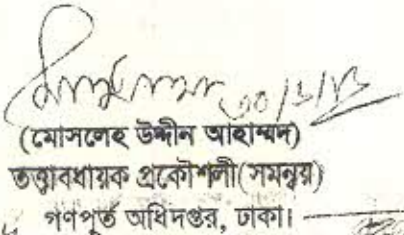 ৩০/৬/১৩
(মোসলেহ উদ্দীন আহাম্মদ)
তত্ত্বাবধায়ক প্রকৌশলী(সমন্বয়)
গণপূর্ত অধিদপ্তর, ঢাকা।